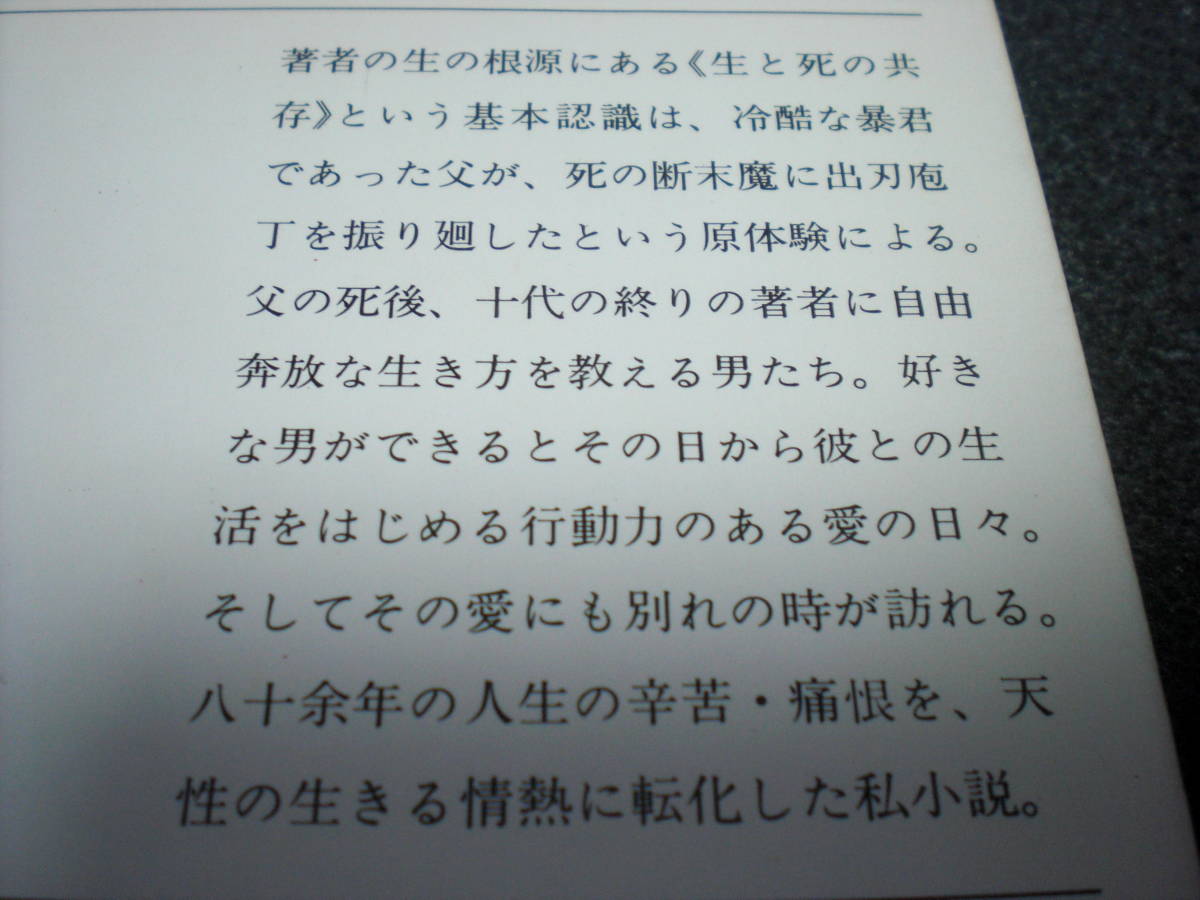 著者の生の根源にある《生と死の共
存》という基本認識は、冷酷な暴君
であった父が、死の断末魔に出刃庖
丁を振り廻したという原体験による。
父の死後、十代の終りの著者に自由
奔放な生き方を教える男たち。好き
な男ができるとその日から彼との生
活をはじめる行動力のある愛の日々。
そしてその愛にも別れの時が訪れる。
八十余年の人生の辛苦・痛恨を、天
性の生きる情熱に転化した私小説。